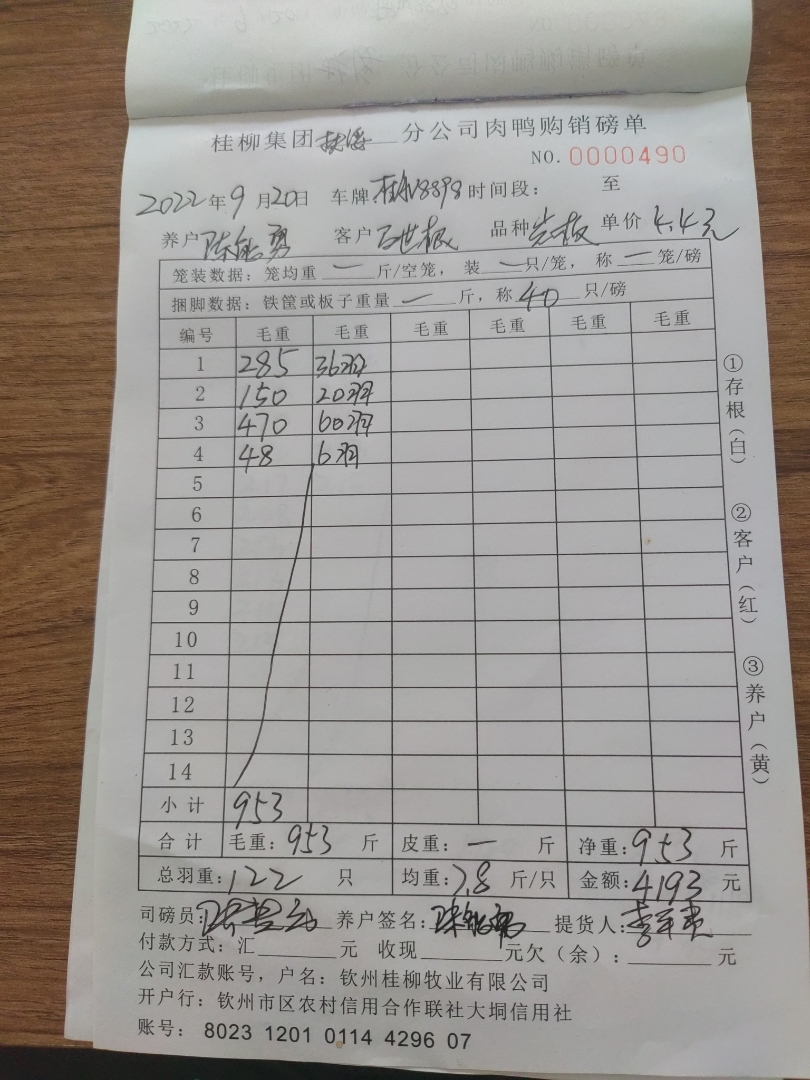 桂柳集团 分公司肉鸭购销磅单
NO. 0000490
2022年9月20日 车牌 桂 8898 时间段： 至
养户 陈 勇 客户 世根 品种 单价 4.4元
笼装数据：笼均重 一 斤/空笼， 装 一 只/笼， 称 一 笼/磅
捆脚数据：铁筐或板子重量 一 斤，称 40 只/磅
编号 毛重 毛重 毛重 毛重 毛重 毛重
1 285 36羽
2 150 20羽
3 470 60羽
4 48 6羽
5
6
7
8
9
10
11
12
13
14
小 计 953
合 计 毛重：953 斤 皮重： 一 斤 净重：953 斤
总羽重：122 只 均重：7.8 斤/只 金额：4193 元
司磅员： 养户签名：陈 勇 提货人：
付款方式：汇 元 收现 元欠（余）： 元
公司汇款账号，户名：钦州桂柳牧业有限公司
开户行：钦州市区农村信用合作联社大垌信用社
账号： 8023 1201 0114 4296 07
①存根（白）
②客户（红）
③养户（黄）